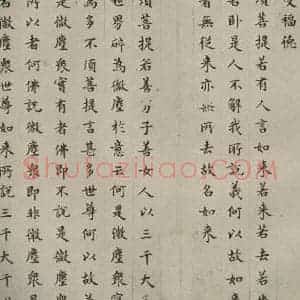 受福德
須菩提若有人言如來若來若去若
若卧是人不解我所說義何以故如
者無從來亦無所去故名如來
須菩提若善男子善女人以三千大
世界碎為微塵於意云何是微塵
甚多不須菩提言甚多世尊何以故
是微塵衆實有者佛即不說是微塵
所以者何佛說微塵衆即非微塵衆
名微塵衆世尊如來所說三千大千
Shufaziliao.COM